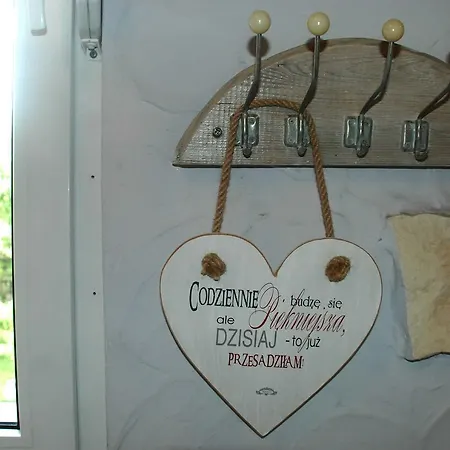 CODZIENNIE budzę się
Piękniejsza,
ale
DZISIAJ - to już
PRZESADZIŁAM!